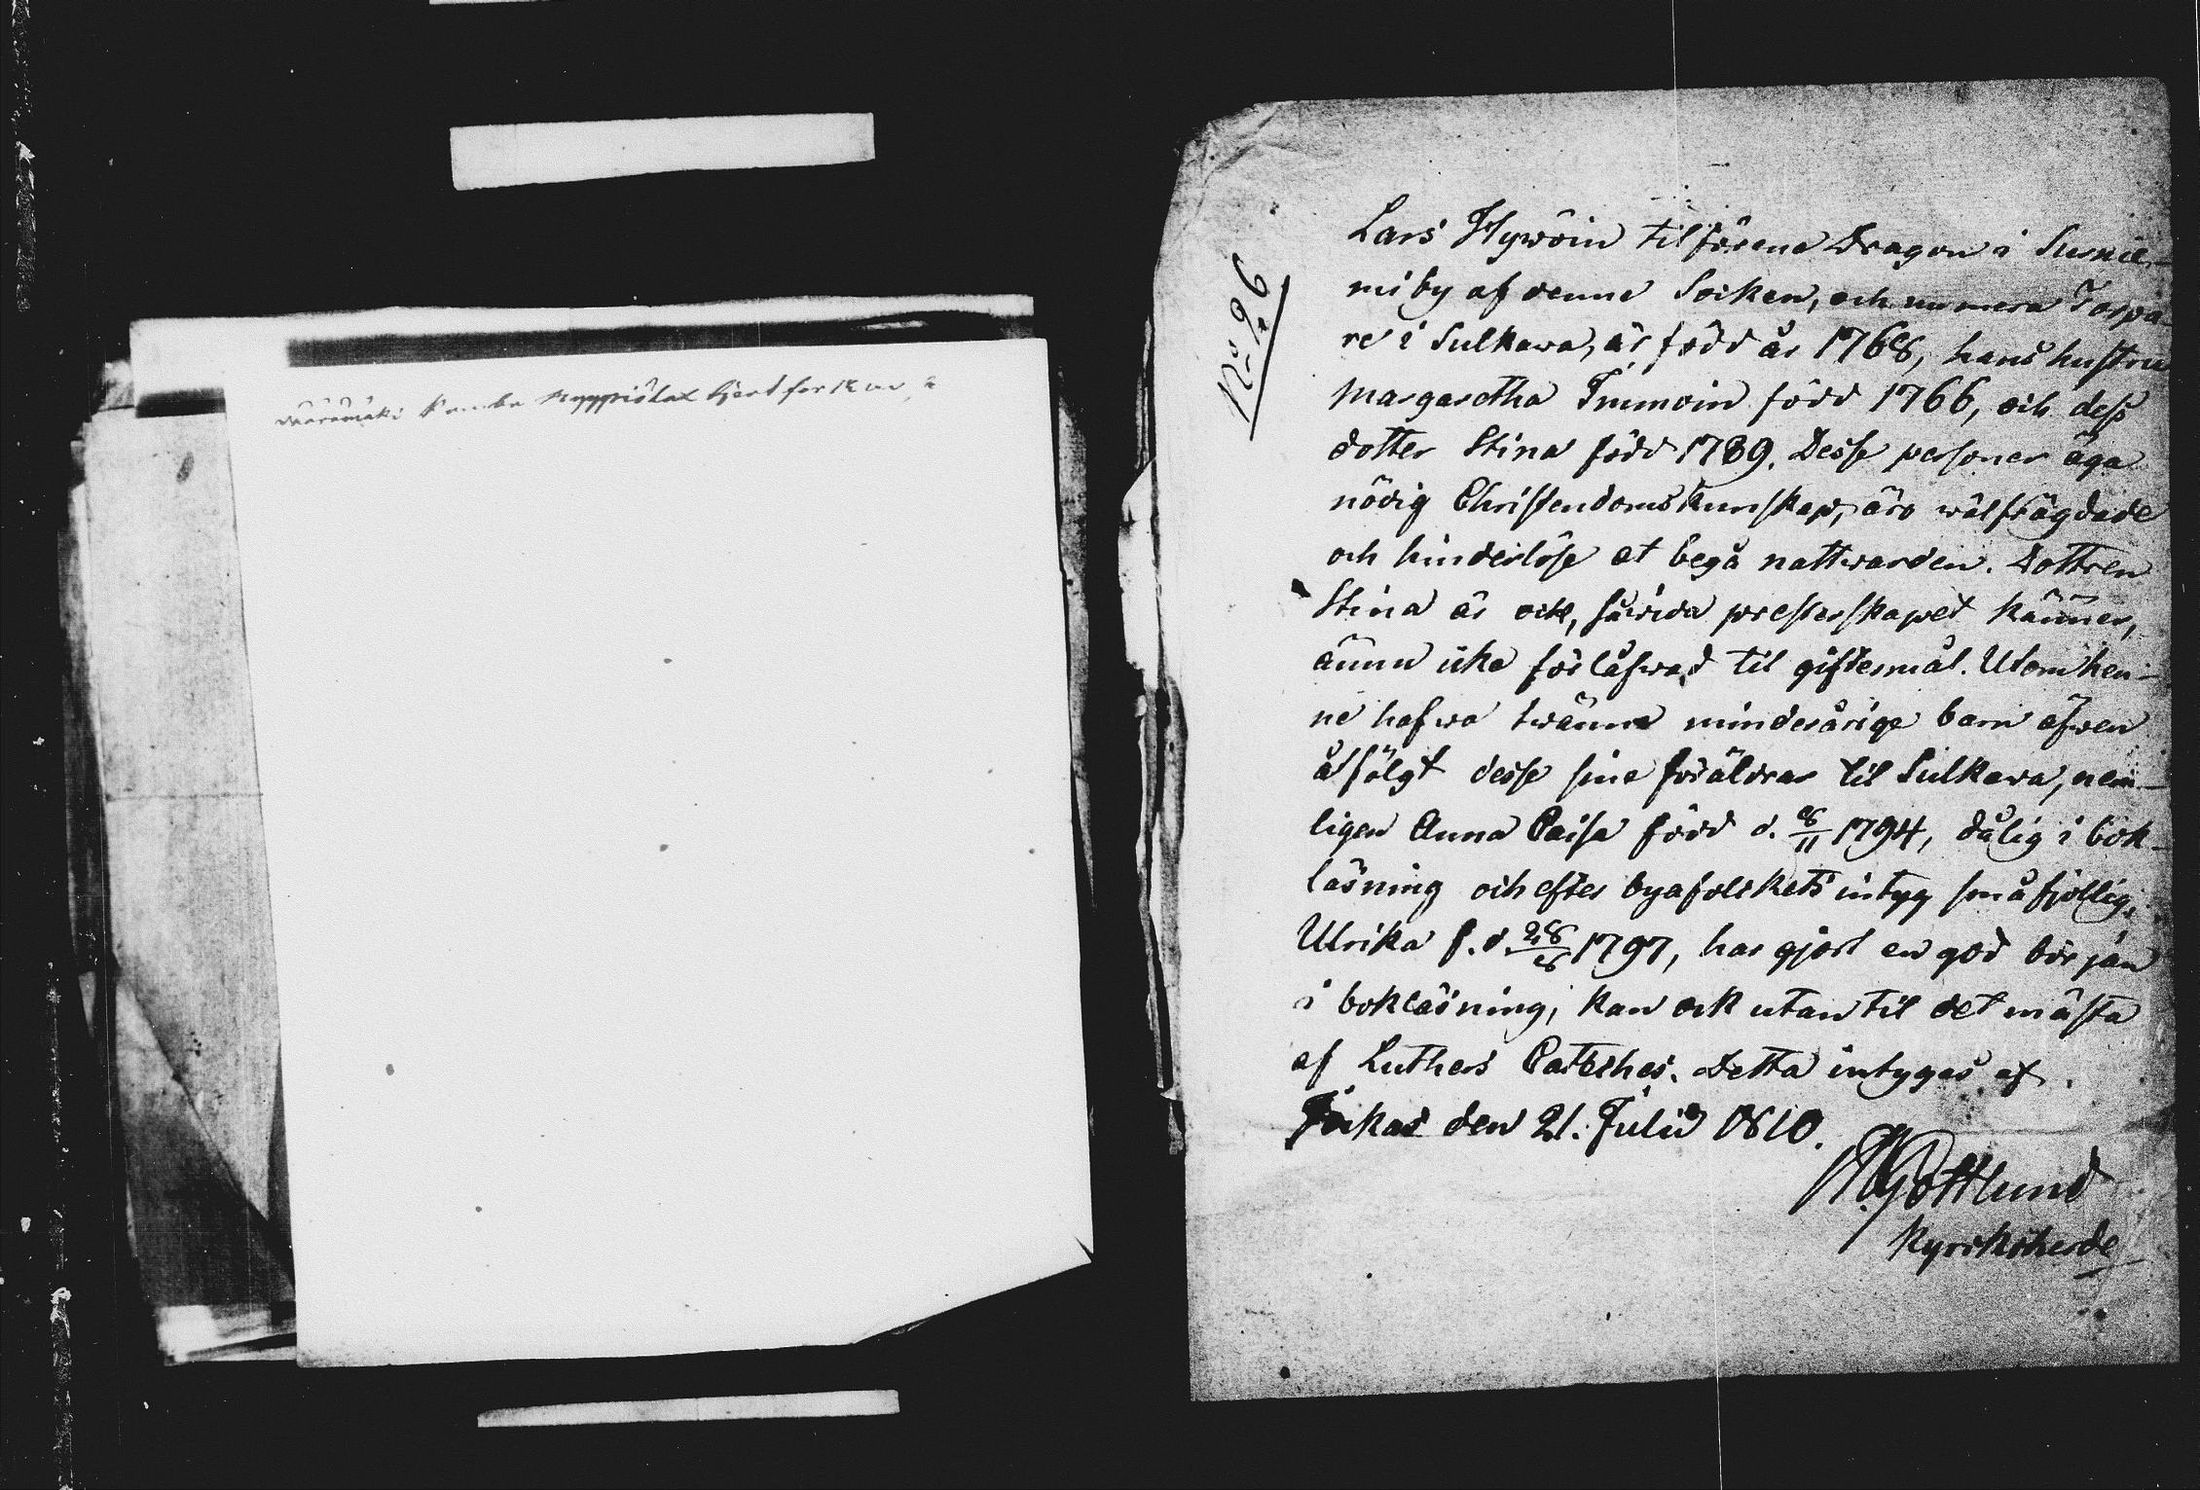 N:o 26
Lars Hywöin tilförene Dragon i
mi by af denne Socken, och numera Torpa-
re i Sulkava, är född år 1768, hans hustru
Margaretha Immoin född 1766, och dess
dotter Stina född 1789. Desse personer äga
nödig Christendomskunskap, äro wälfrägdade
och hinderlöse at begå nattwarden. Dottren
Stina är ock, såvida presterskapet känner,
ännu icke förlåfwad til giftermål. Utom hen-
ne hafwa twänne minderårige barn äfwen
åtfölgt desse sine föräldrar til Sulkava, nem-
ligen Anna Caisa född d. 8/11 1794, dålig i bok-
läsning och efter byafolkets intyg småfjollig,
Ulrika f. d. 28/8 1797, har gjort en god början
i bokläsning, kan ock utantil det mästa
af Luthers Cateches. Detta intygas af
Jockas den 21. Julii 1810.
Gottlund
Kyrckoherde